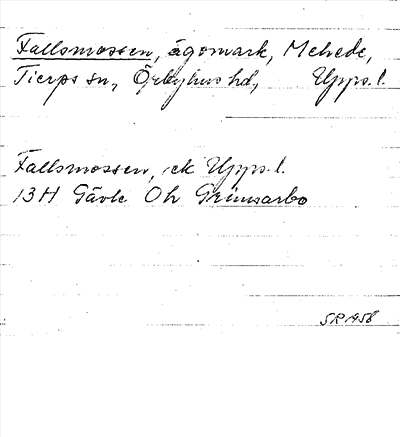 Fallsmossen, ägomark, Mehede,
Tierps sn, Örbyhus hd, Upps. l.
Fallsmossen, ek Upps. l.
13H Gävle Oh Grimsarbo
SR 1958